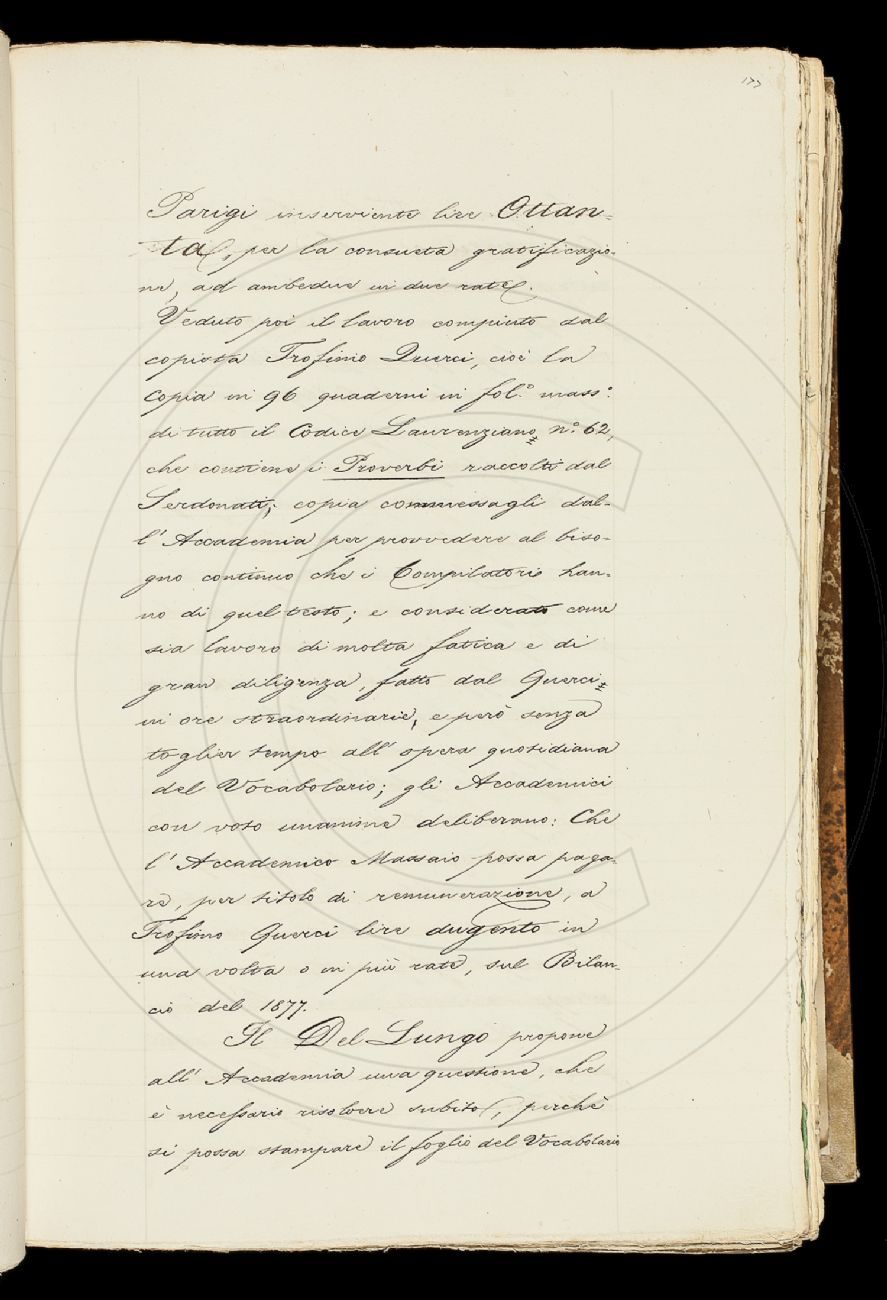 177
Parigi inserviente lire Ottan=
ta, per la consueta gratificazio-
ne, ad ambedue in due rate.
Veduto poi il lavoro compiuto dal
copista Trofimo Querci, cioè la
Copia in 96 quaderni in fol.º mass.º
di tutto il Codice Laurenziano n.º 62,
che contiene i Proverbi raccolti dal
Serdonati; copia commessagli dal-
l'Accademia per provvedere al biso-
gno continuo che i Compilatori han-
no di quel testo; e considerato come
sia lavoro di molta fatica e di
gran diligenza, fatto dal Querci
in ore straordinarie, e però senza
toglier tempo all'opera quotidiana
del Vocabolario; gli Accademici
con voto unanime deliberano: Che
l'Accademico Massaio possa paga-
re, per titolo di remunerazione, a
Trofimo Querci lire dugento in
una volta o in più rate, sul Bilan-
cio del 1877.
Il Del Lungo propone
all'Accademia una questione, che
è necessario risolvere subito, perchè
si possa stampare il foglio del Vocabolario